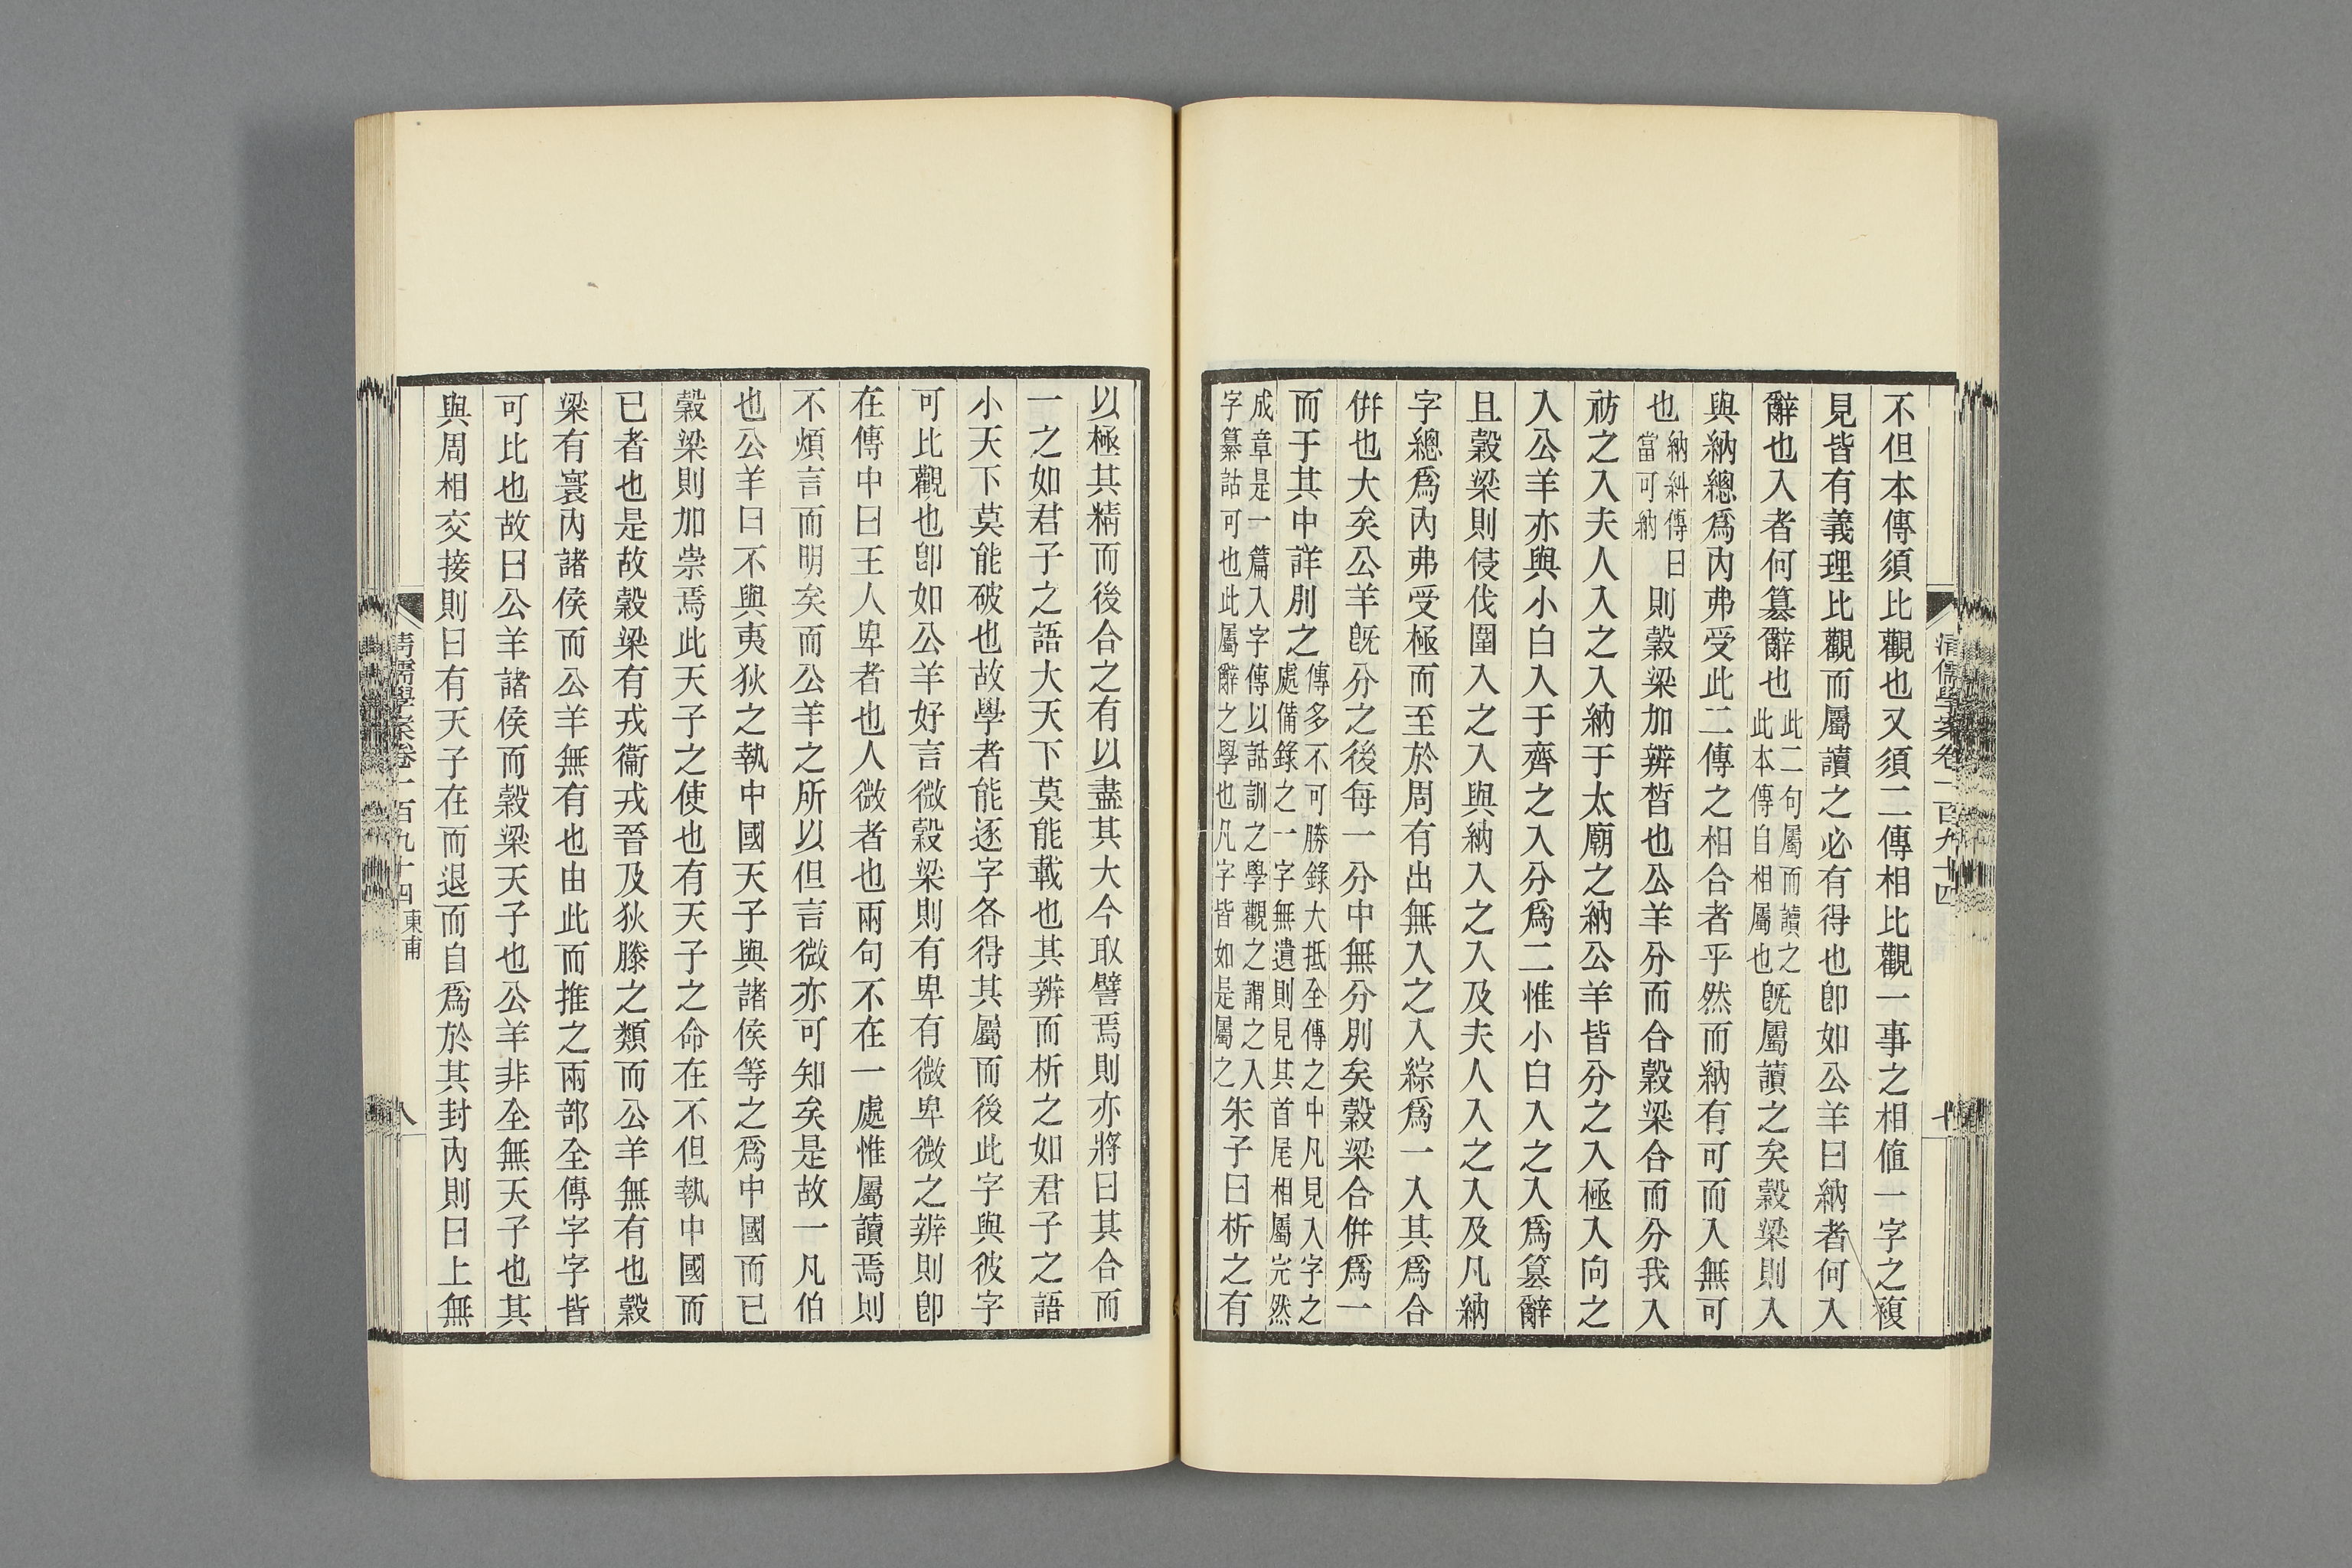 清儒學案卷一百九十四
七
不但本傳須比觀也又須二傳相比觀一事之相值一字之複
見皆有義理比觀而屬讀之必有得也卽如公羊曰納者何入
辭也入者何篡辭也此二句屬而讀之此本傳自相屬也旣屬讀之矣穀梁則入
與納總爲內弗受此二傳之相合者乎然而納有可而入無可
也納糾傳曰當可納則穀梁加辨晳也公羊分而合穀梁合而分我入
祊之入夫人入之入納于太廟之納公羊皆分之入極入向之
入公羊亦與小白入于齊之入分爲二惟小白入之入爲篡辭
且穀梁則侵伐圍入之入與納入之入及夫人入之入及凡納
字總爲內弗受極而至於周有出無入之入綜爲一入其爲合
倂也大矣公羊旣分之後每一分中無分別矣穀梁合倂爲一
而于其中詳別之傳多不可勝錄大抵全傳之中凡見入字之處備錄之一字無遺則見其首尾相屬完然
成章是一篇入字傳以詁訓之學觀之謂之入字纂詁可也此屬辭之學也凡字皆如是屬之朱子曰析之有
以極其精而後合之有以盡其大今取譬焉則亦將曰其合而
一之如君子之語大天下莫能載也其辨而析之如君子之語
小天下莫能破也故學者能逐字各得其屬而後此字與彼字
可比觀也卽如公羊好言微穀梁則有卑有微卑微之辨則卽
在傳中曰王人卑者也人微者也兩句不在一處惟屬讀焉則
不煩言而明矣而公羊之所以但言微亦可知矣是故一凡伯
也公羊曰不與夷狄之執中國天子與諸侯等之爲中國而已
穀梁則加崇焉此天子之使也有天子之命在不但執中國而
已者也是故穀梁有戎衞戎晉及狄滕之類而公羊無有也穀
梁有寰內諸侯而公羊無有也由此而推之兩部全傳字字皆
可比也故曰公羊諸侯而穀梁天子也公羊非全無天子也其
與周相交接則曰有天子在而退而自爲於其封內則曰上無
清儒學案卷一百九十四 東甫
八